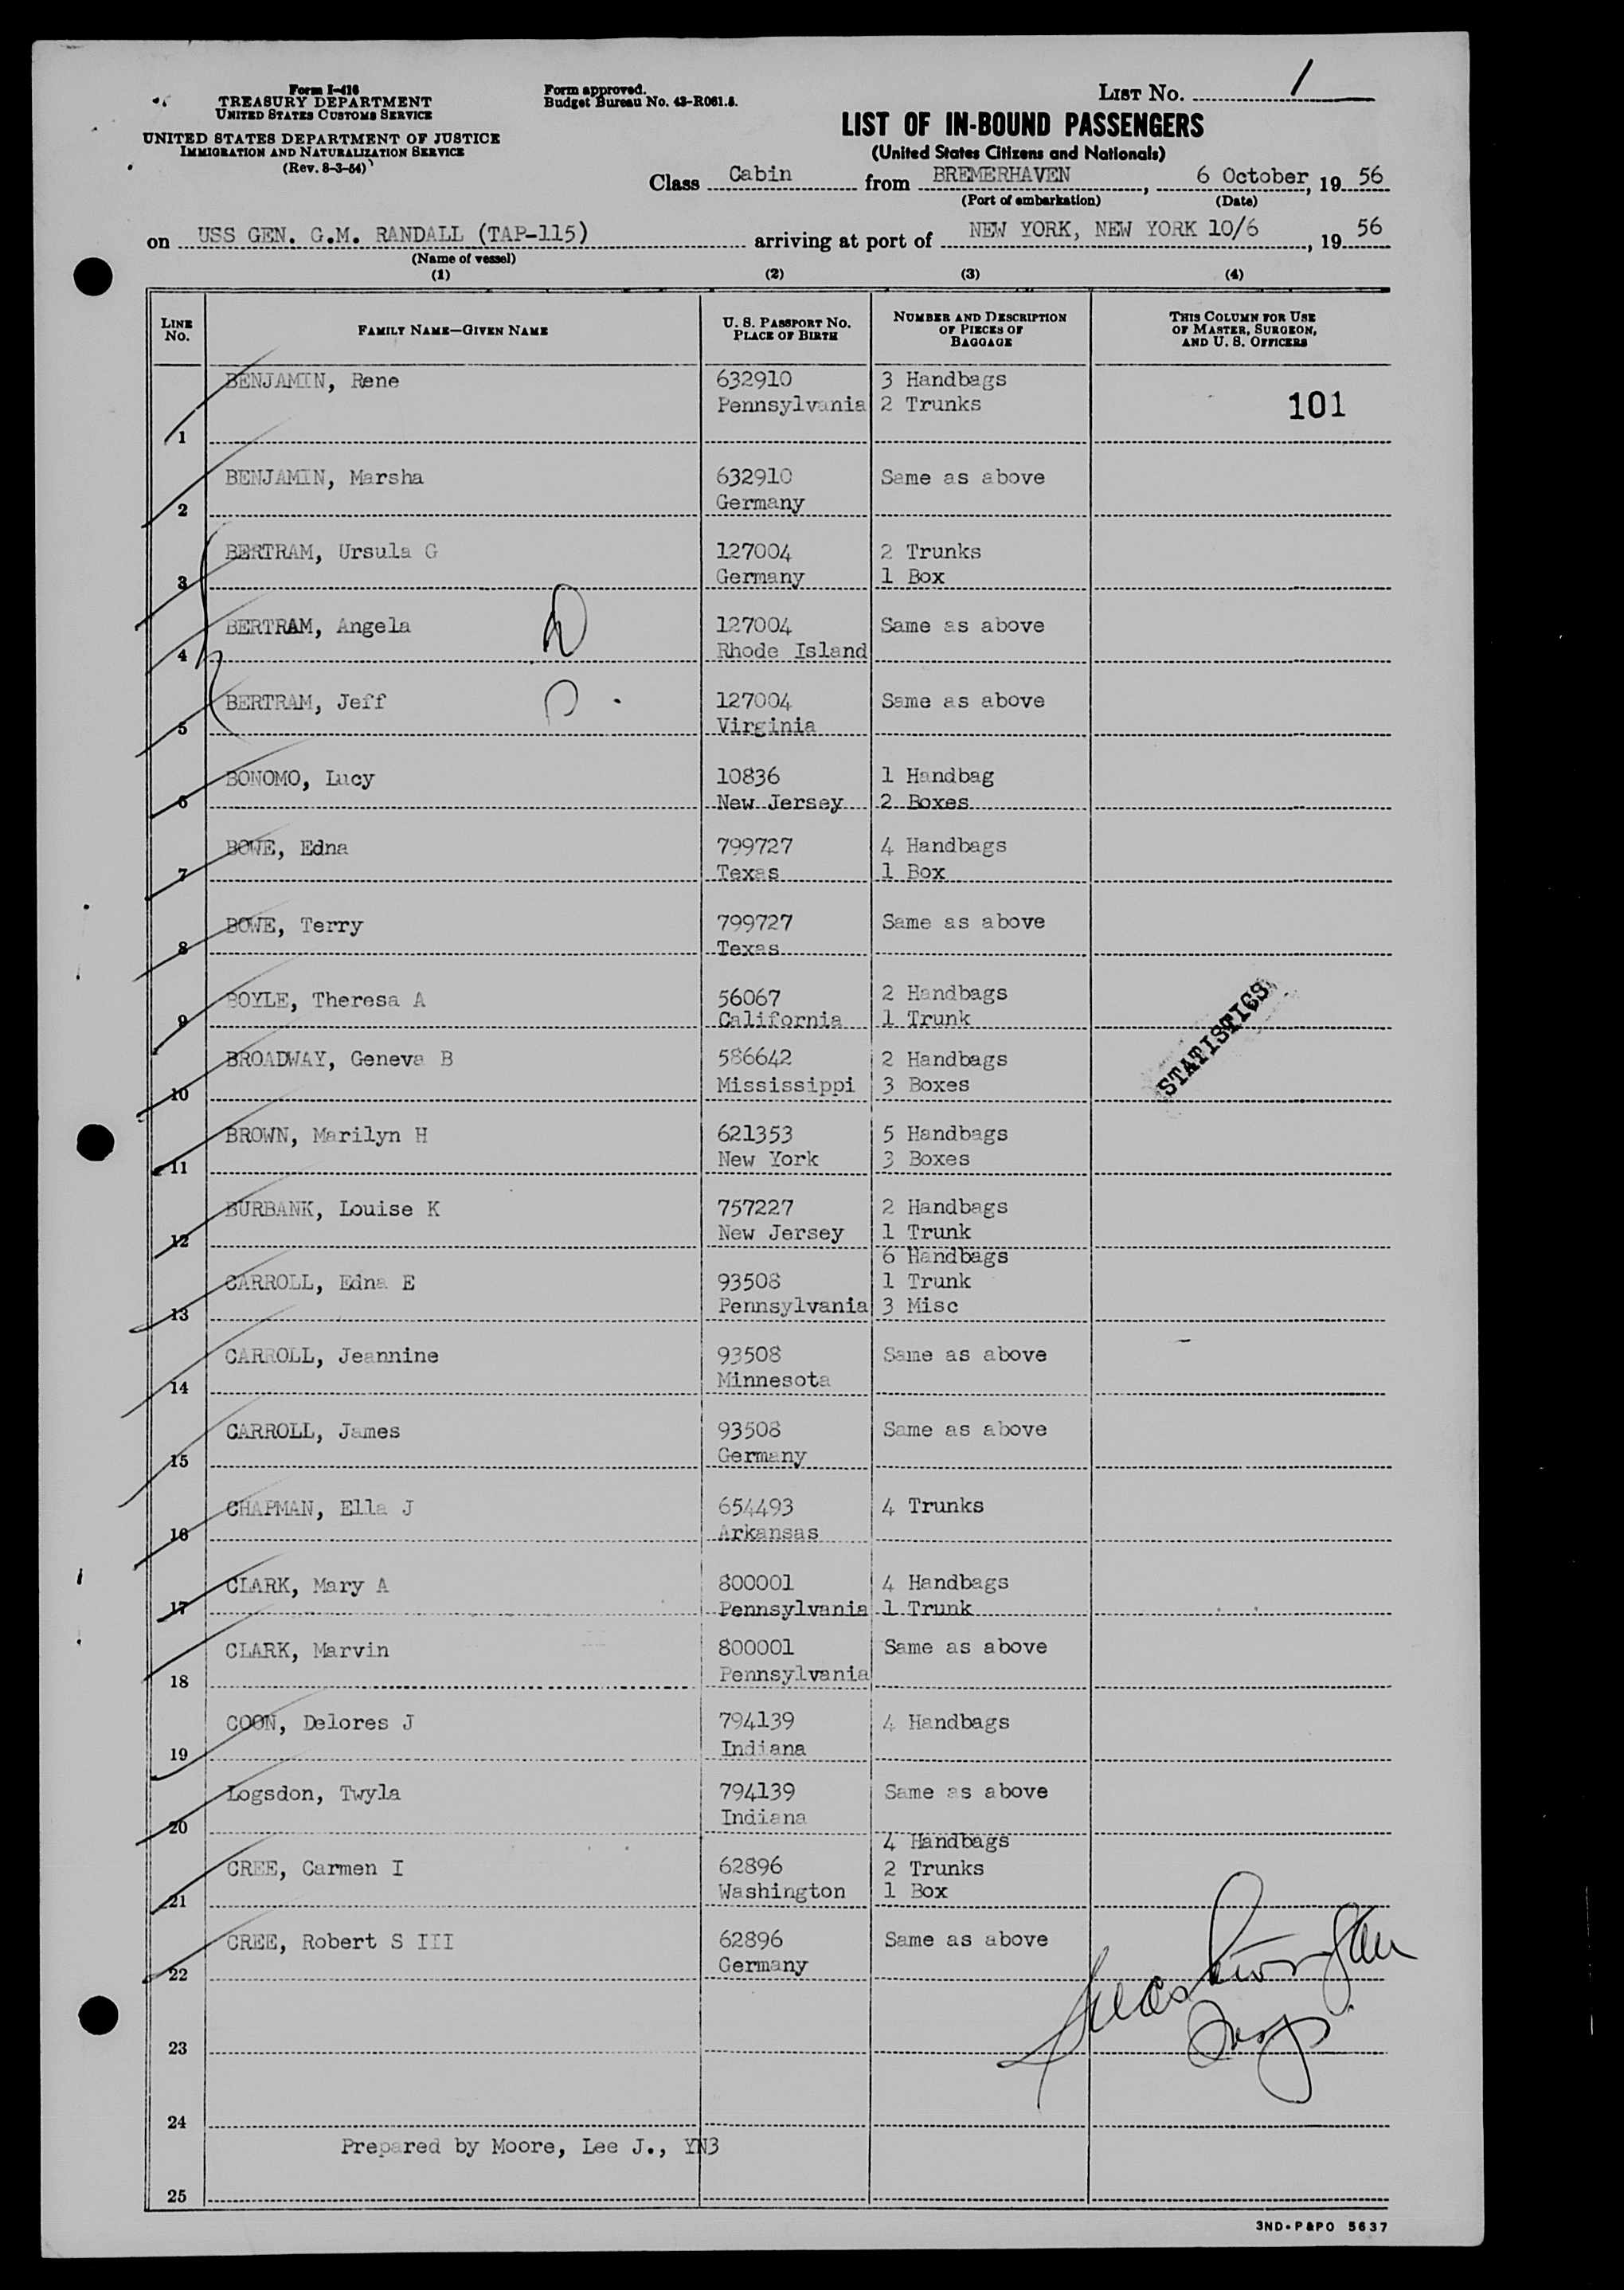 Form I-416
TREASURY DEPARTMENT
UNITED STATES CUSTOMS SERVICE
UNITED STATES DEPARTMENT OF JUSTICE
IMMIGRATION AND NATURALIZATION SERVICE
(Rev. 8-3-54)
Form approved.
Budget Bureau No. 43-R061.5.
LIST No. 1
LIST OF IN-BOUND PASSENGERS
(United States Citizens and Nationals)
Class Cabin from BREMERHAVEN, 6 October, 19 56
(Port of embarkation) (Date)
on USS GEN. G.M. RANDALL (TAP-115) arriving at port of NEW YORK, NEW YORK 10/6, 19 56
(Name of vessel)
(1) (2) (3) (4)
LINE No. FAMILY NAME—GIVEN NAME U. S. PASSPORT No. PLACE OF BIRTH NUMBER AND DESCRIPTION OF PIECES OF BAGGAGE THIS COLUMN FOR USE OF MASTER, SURGEON, AND U. S. OFFICERS
BENJAMIN, Rene 632910 3 Handbags
Pennsylvania 2 Trunks 101
1
BENJAMIN, Marsha 632910 Same as above
2 Germany
BERTRAM, Ursula G 127004 2 Trunks
3 Germany 1 Box
BERTRAM, Angela 127004 Same as above
4 Rhode Island
BERTRAM, Jeff 127004 Same as above
5 Virginia
BONOMO, Lucy 10836 1 Handbag
6 New Jersey 2 Boxes
BOWE, Edna 799727 4 Handbags
7 Texas 1 Box
BOWE, Terry 799727 Same as above
8 Texas
BOYLE, Theresa A 56067 2 Handbags
9 California 1 Trunk
STATISTICS
BROADWAY, Geneva B 586642 2 Handbags
10 Mississippi 3 Boxes
BROWN, Marilyn H 621353 5 Handbags
11 New York 3 Boxes
BURBANK, Louise K 757227 2 Handbags
12 New Jersey 1 Trunk
6 Handbags
CARROLL, Edna E 93508 1 Trunk
13 Pennsylvania 3 Misc
CARROLL, Jeannine 93508 Same as above
14 Minnesota
CARROLL, James 93508 Same as above
15 Germany
CHAPMAN, Ella J 654493 4 Trunks
16 Arkansas
CLARK, Mary A 800001 4 Handbags
17 Pennsylvania 1 Trunk
CLARK, Marvin 800001 Same as above
18 Pennsylvania
COON, Delores J 794139 4 Handbags
19 Indiana
Logsdon, Twyla 794139 Same as above
20 Indiana
4 Handbags
CREE, Carmen I 62896 2 Trunks
21 Washington 1 Box
CREE, Robert S III 62896 Same as above
22 Germany
23
24
Prepared by Moore, Lee J., YN3
25
3ND-P&PO 5637